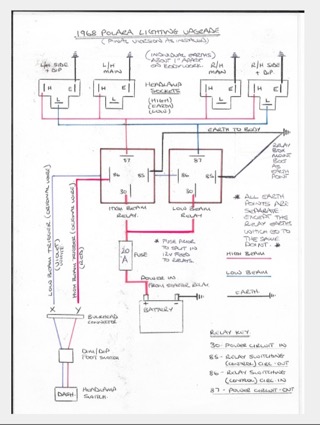 1968 POLARA LIGHTING UPGRADE
(FINAL VERSION AS INSTALLED)
L/H SIDE + DIP
L/H MAIN
(INDIVIDUAL EARTHS ABOUT 1" APART ON BODYWORK)
R/H MAIN
R/H SIDE + DIP
H
E
L
HEADLAMP SOCKETS
(HIGH)
(EARTH)
(LOW)
H
E
L
EARTH TO BODY
RELAY BOX MOUNT BOLT AS EARTH POINT
87
86
85
30
87
86
85
30
HIGH BEAM RELAY
LOW BEAM RELAY
LOW BEAM TRIGGER (ORIGINAL WIRE)
HIGH BEAM TRIGGER (ORIGINAL WIRE)
(RED)
* ALL EARTH POINTS ARE SEPARATE EXCEPT THE RELAY EARTHS WHICH GO TO THE SAME POINT *
20 A
FUSE
* FUSE PRIOR TO SPLIT IN 12V FEED TO RELAYS.
HIGH BEAM
LOW BEAM
EARTH
POWER IN FROM STARTER RELAY
BATTERY
X
Y
BULKHEAD CONNECTOR
DIM/DIP FOOT SWITCH
DASH
HEADLAMP SWITCH
RELAY KEY
30 - POWER CIRCUIT IN
85 - RELAY SWITCHING (CONTROL) CIRC. OUT
86 - RELAY SWITCHING (CONTROL) CIRC IN
87 - POWER CIRCUIT - OUT